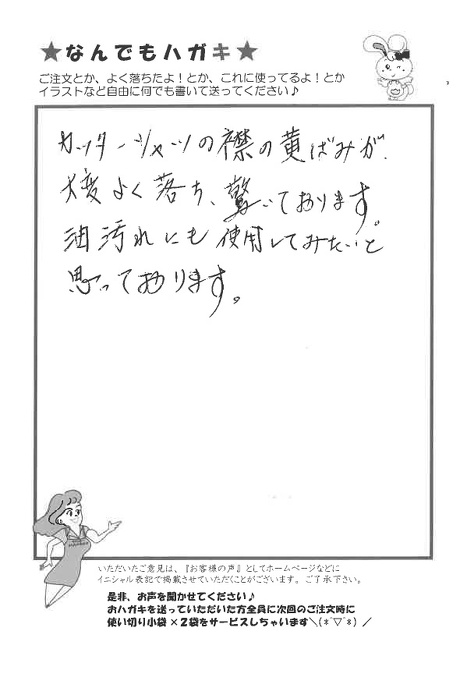 ★なんでもハガキ★
ご注文とか、よく落ちたよ！とか、これに使ってるよ！とか
イラストなど自由に何でも書いて送ってください♪
カッターシャツの襟の黄ばみが、
大変よく落ち、驚いております。
油汚れにも使用してみたいと
思っております。
いただいたご意見は、『お客様の声』としてホームページなどに
イニシャル表記で掲載させていただくことがございます。ご了承下さい。
是非、お声を聞かせてください♪
おハガキを送っていただいた方全員に次回のご注文時に
使い切り小袋×2袋をサービスしちゃいます＼(*ﾟ▽ﾟ*)／